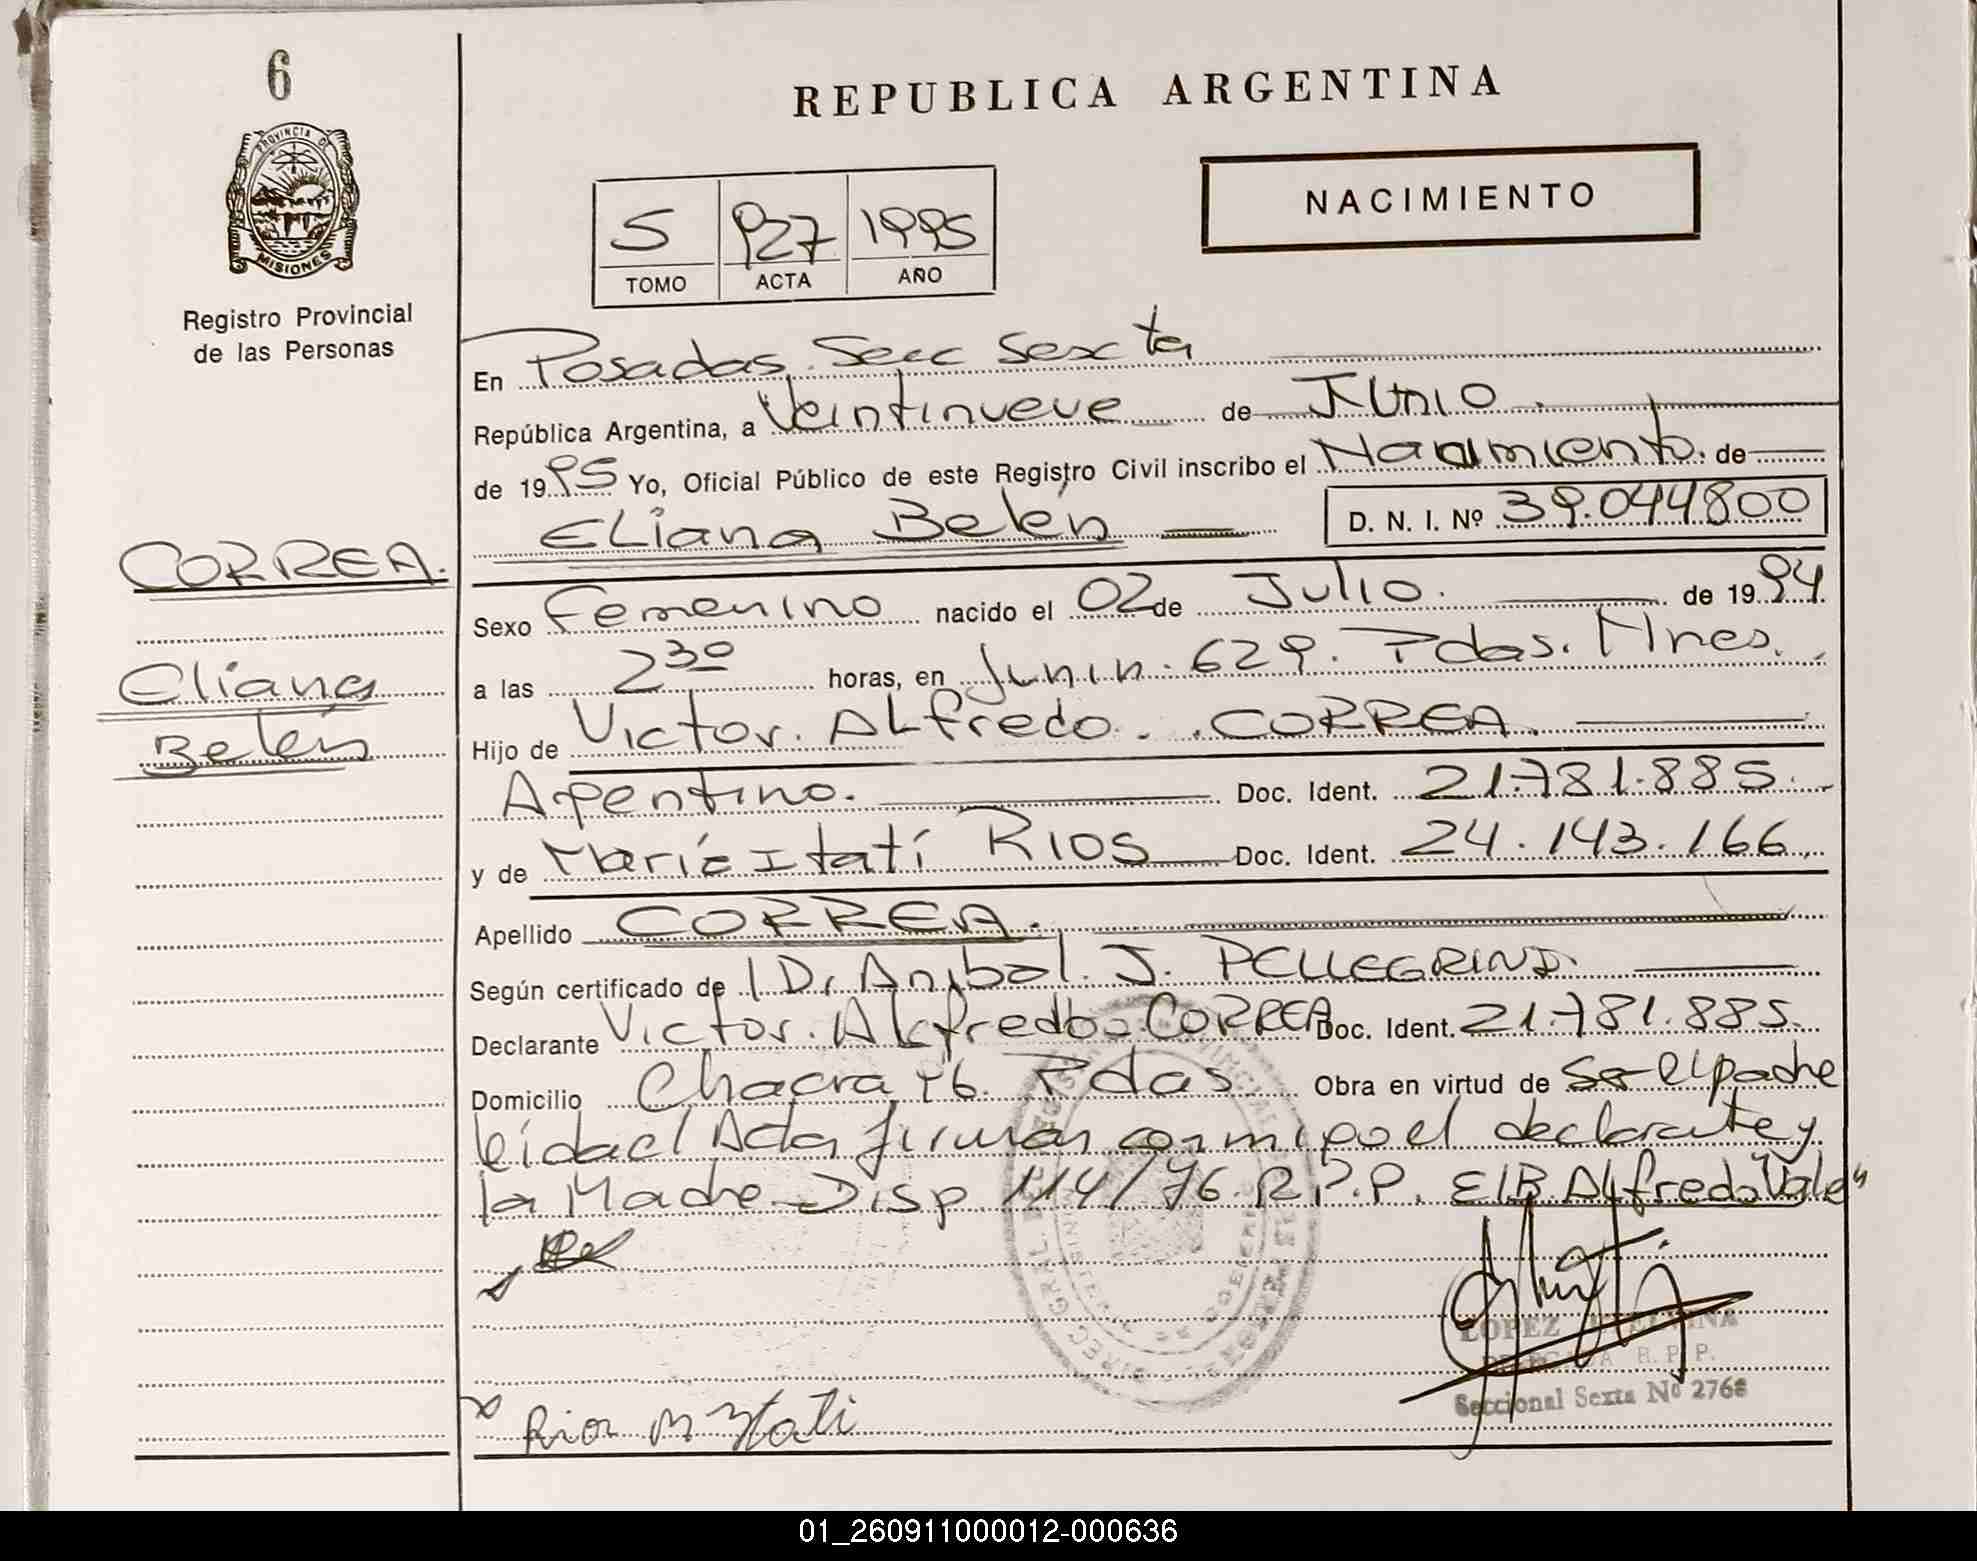 6
PROVINCIA DE
MISIONES
Registro Provincial
de las Personas
CORREA.
Eliana
Belén
REPUBLICA ARGENTINA
NACIMIENTO
5 927 1995
TOMO ACTA AÑO
En Posadas. Secc Sexta
República Argentina, a Veintinueve de JUnio
de 1995 Yo, Oficial Público de este Registro Civil inscribo el Nacimiento. de
ELiana Belén D. N. I. Nº 39.044800
Sexo Femenino nacido el 02 de Julio. de 1994
a las 2 30 horas, en Junin. 629. Pdas. Mnes.
Hijo de Victor. ALfredo. CORREA.
Argentino. Doc. Ident. 21.781.885.
y de María Itatí RIOS Doc. Ident. 24.143.166
Apellido CORREA.
Según certificado de Dr Anibal. J. PELLEGRINI.
Declarante Victor. Alfredo CORREA Doc. Ident. 21.781.885.
Domicilio Chacra Pdas Obra en virtud de Ser el padre
leida el Acta firman conmigo el declarante y
la Madre Disp 114/76. R.P.P. E/B Alfredo "Vale"
LOPEZ
R. P. P.
Seccional Sexta Nº 2768
x Rios M Itati
01_260911000012-000636